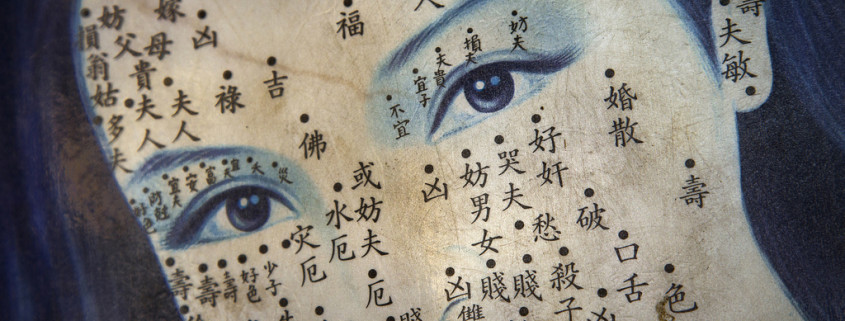 損翁姑
多夫
妨父
貴夫人
嫁母
夫人
凶
祿
吉
福
人
佛
不宜
宜子
夫貴
損夫
妨夫
壽
夫敏
婚散
好奸
哭夫
妨男女
凶
或妨夫
水厄
灾厄
厄
災
夫
壽
壽
壽
好色
少子
愁
破
壽
口舌
色
殺子
賤
賤
凶